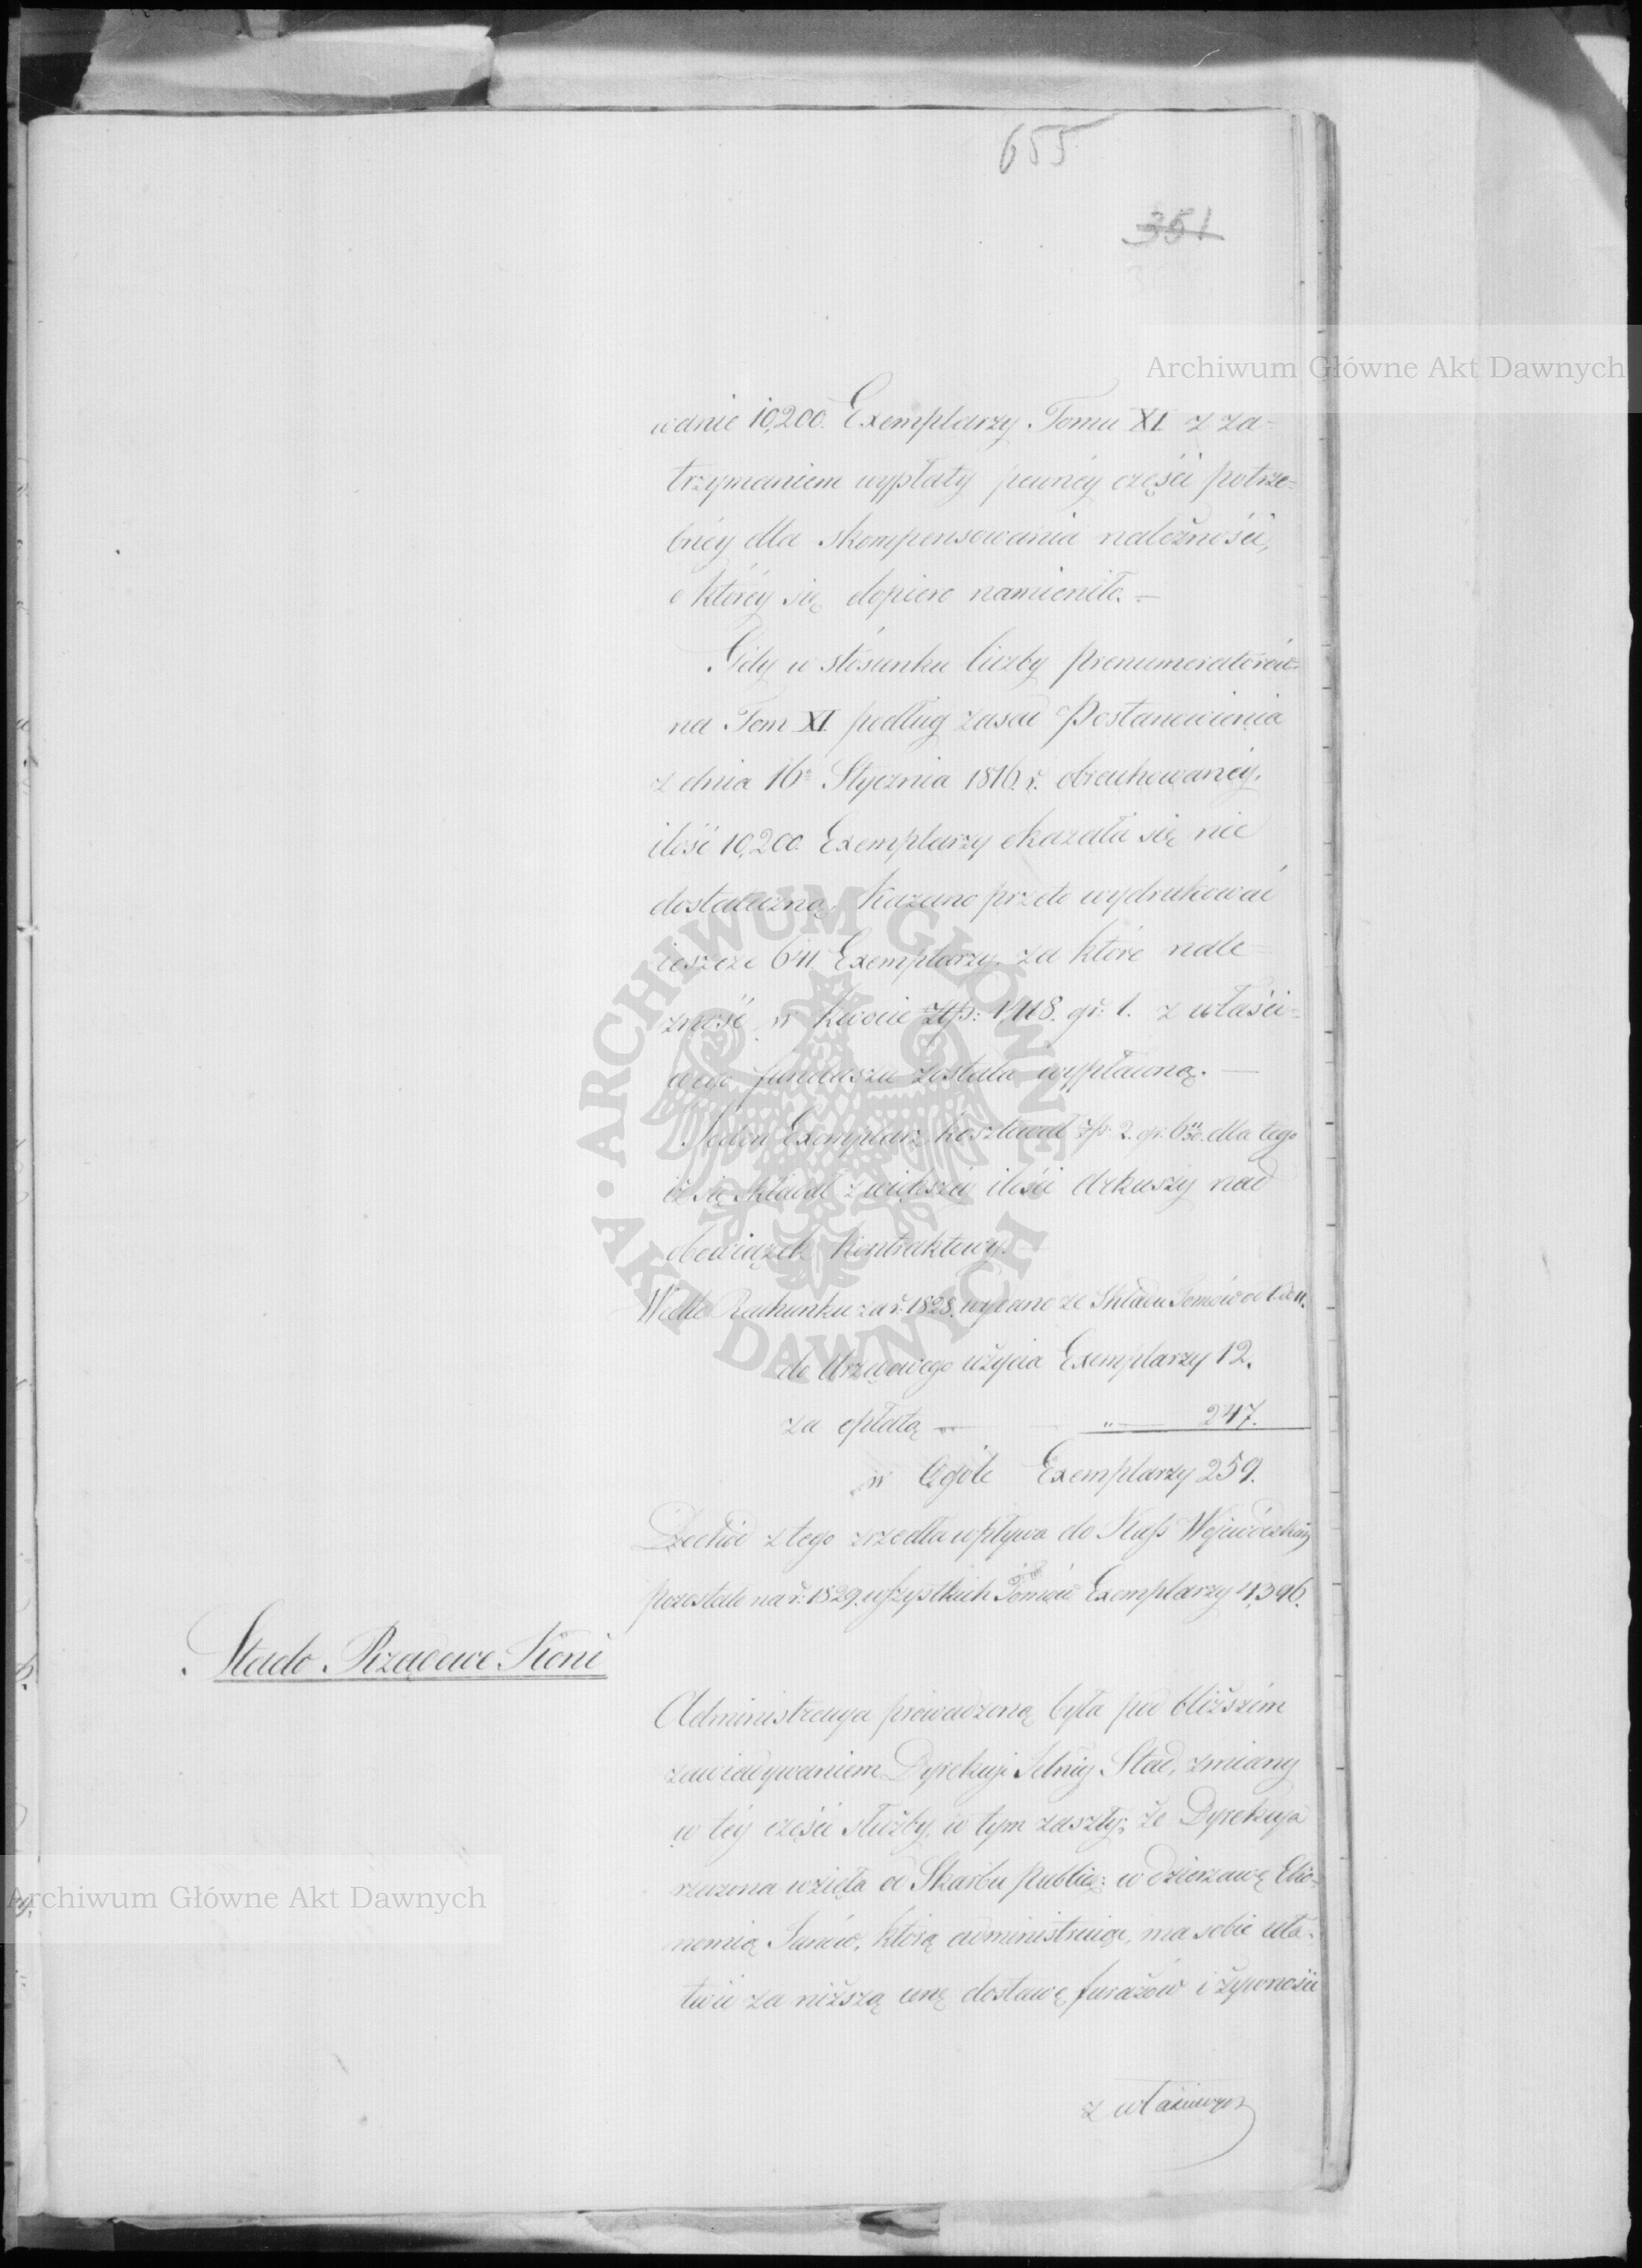 655
351
Archiwum Główne Akt Dawnych
wanie 10,200. Exemplarzy Tomu XI z za-
trzymaniem wypłaty pewnéy części potrze-
bnéy dla skompensowania należności,
o któréy się dopiero namieniło. —
Gdy w stósunku liczby prenumeratorów
na Tom XI podług zasad Postanowienia
z dnia 16º Stycznia 1816. r. obrachowanéy,
ilość 10,200. Exemplarzy okazała się nie
dostateczną, kazano przeto wydrukować
ieszcze 641. Exemplarzy, za które nale-
żność w kwocie złp: 1,418. gr: 1. z właści-
wego funduszu została wypłaconą. —
Jeden Exemplarz kosztował złp: 2. gr: 6 dla tego
iż się składał z większéy ilości arkuszy nad
obowiązek kontraktowy.
Wedle Rachunku za r: 1828. wydano ze Składu Tomów od 1. do 11.
do Urzędowego użycia Exemplarzy 12.
za opłatą — „ — 247.
w Ogóle Exemplarzy 259.
Dochód z tego zrzodła wpływa do Kass Wojewódzkich
pozostało na r: 1829. wszystkich Tomów Exemplarzy 4,396.
Stado Rządowe Koni
Administracya prowadzoną była pod bliższém
zawiadywaniem Dyrekcyi Stad, zmiany
w téy części służby, w tym zaszły, że Dyrekcya
rzeczona wzięła od Skarbu public: w dzierzawę Eko-
nomią Janów, którą administruiąc, ma sobie uła-
twić za niższą cenę dostawę furażów i żywności
z właściwych
ARCHIWUM GŁÓWNE • AKT DAWNYCH •
Archiwum Główne Akt Dawnych